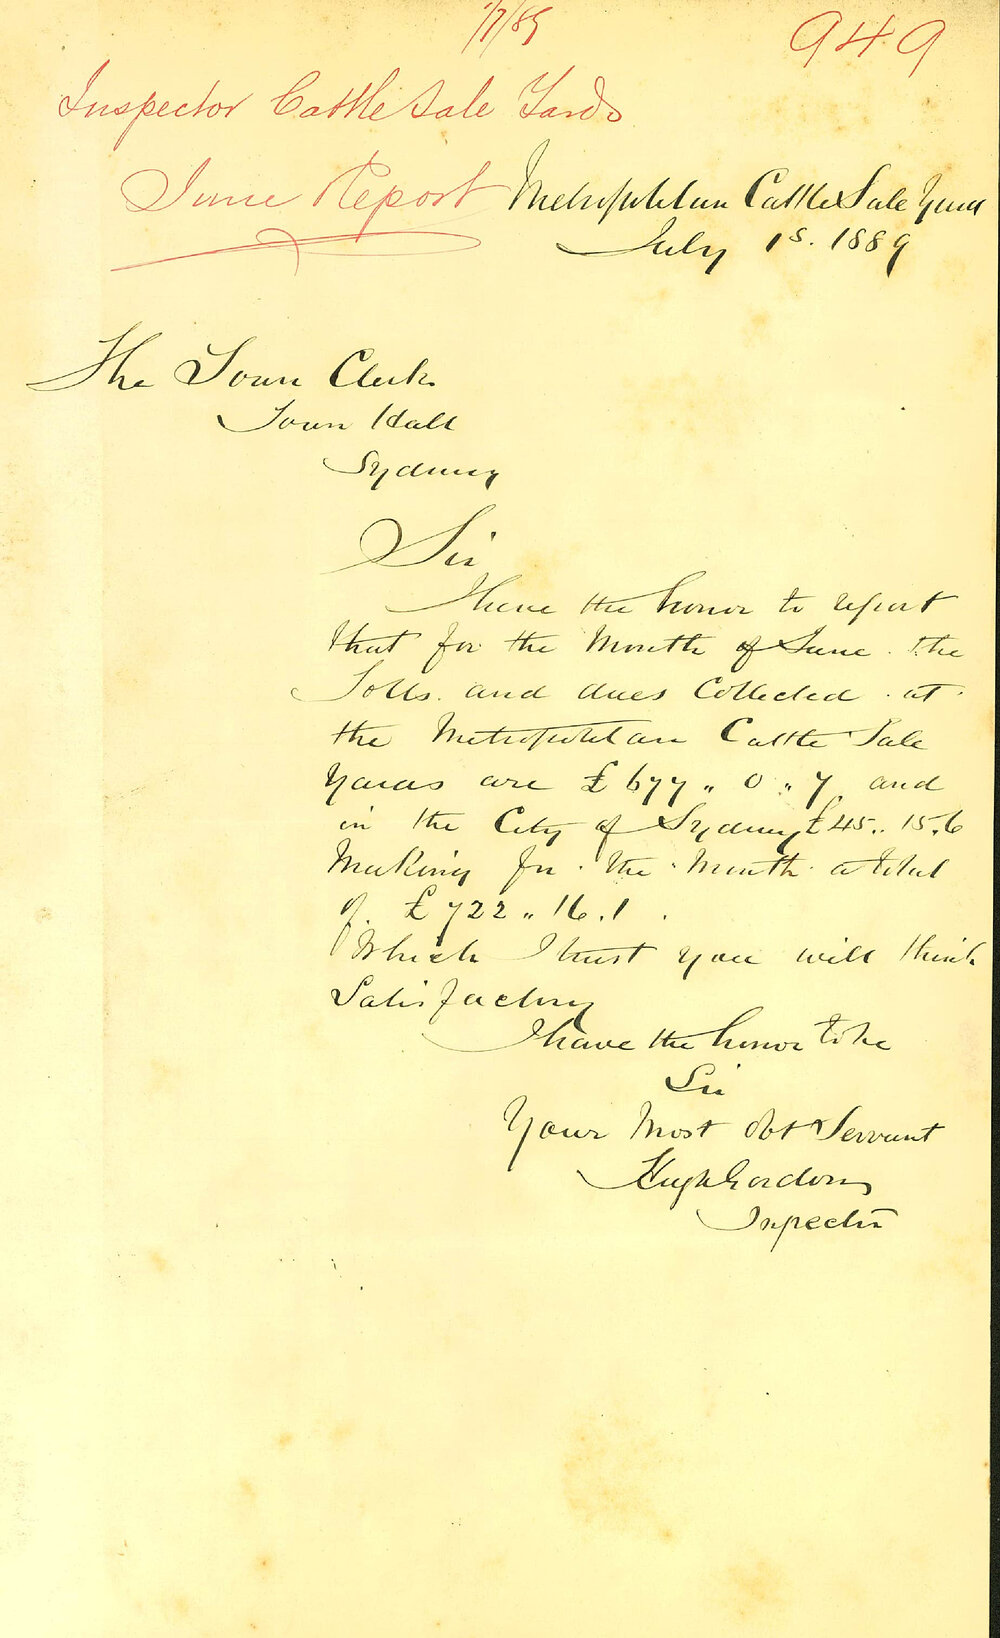 1/7/89
949
Inspector Cattle Sale Yards
June Report
Metropolitan Cattle Sale Yards
July 1s. 1889
The Town Clerk
Town Hall
Sydney
Sir
I have the honor to report
that for the Month of June the
Tolls and dues Collected at
the Metropolitan Cattle Sale
Yards are £677 " 0 " 7 and
in the City of Sydney £45 " 15.6
Making for the Month a total
of £722 " 16.1
Which I trust you will think
Satisfactory
I have the honor to be
Sir
Your Most obt Servant
Hugh Gordon
Inspector